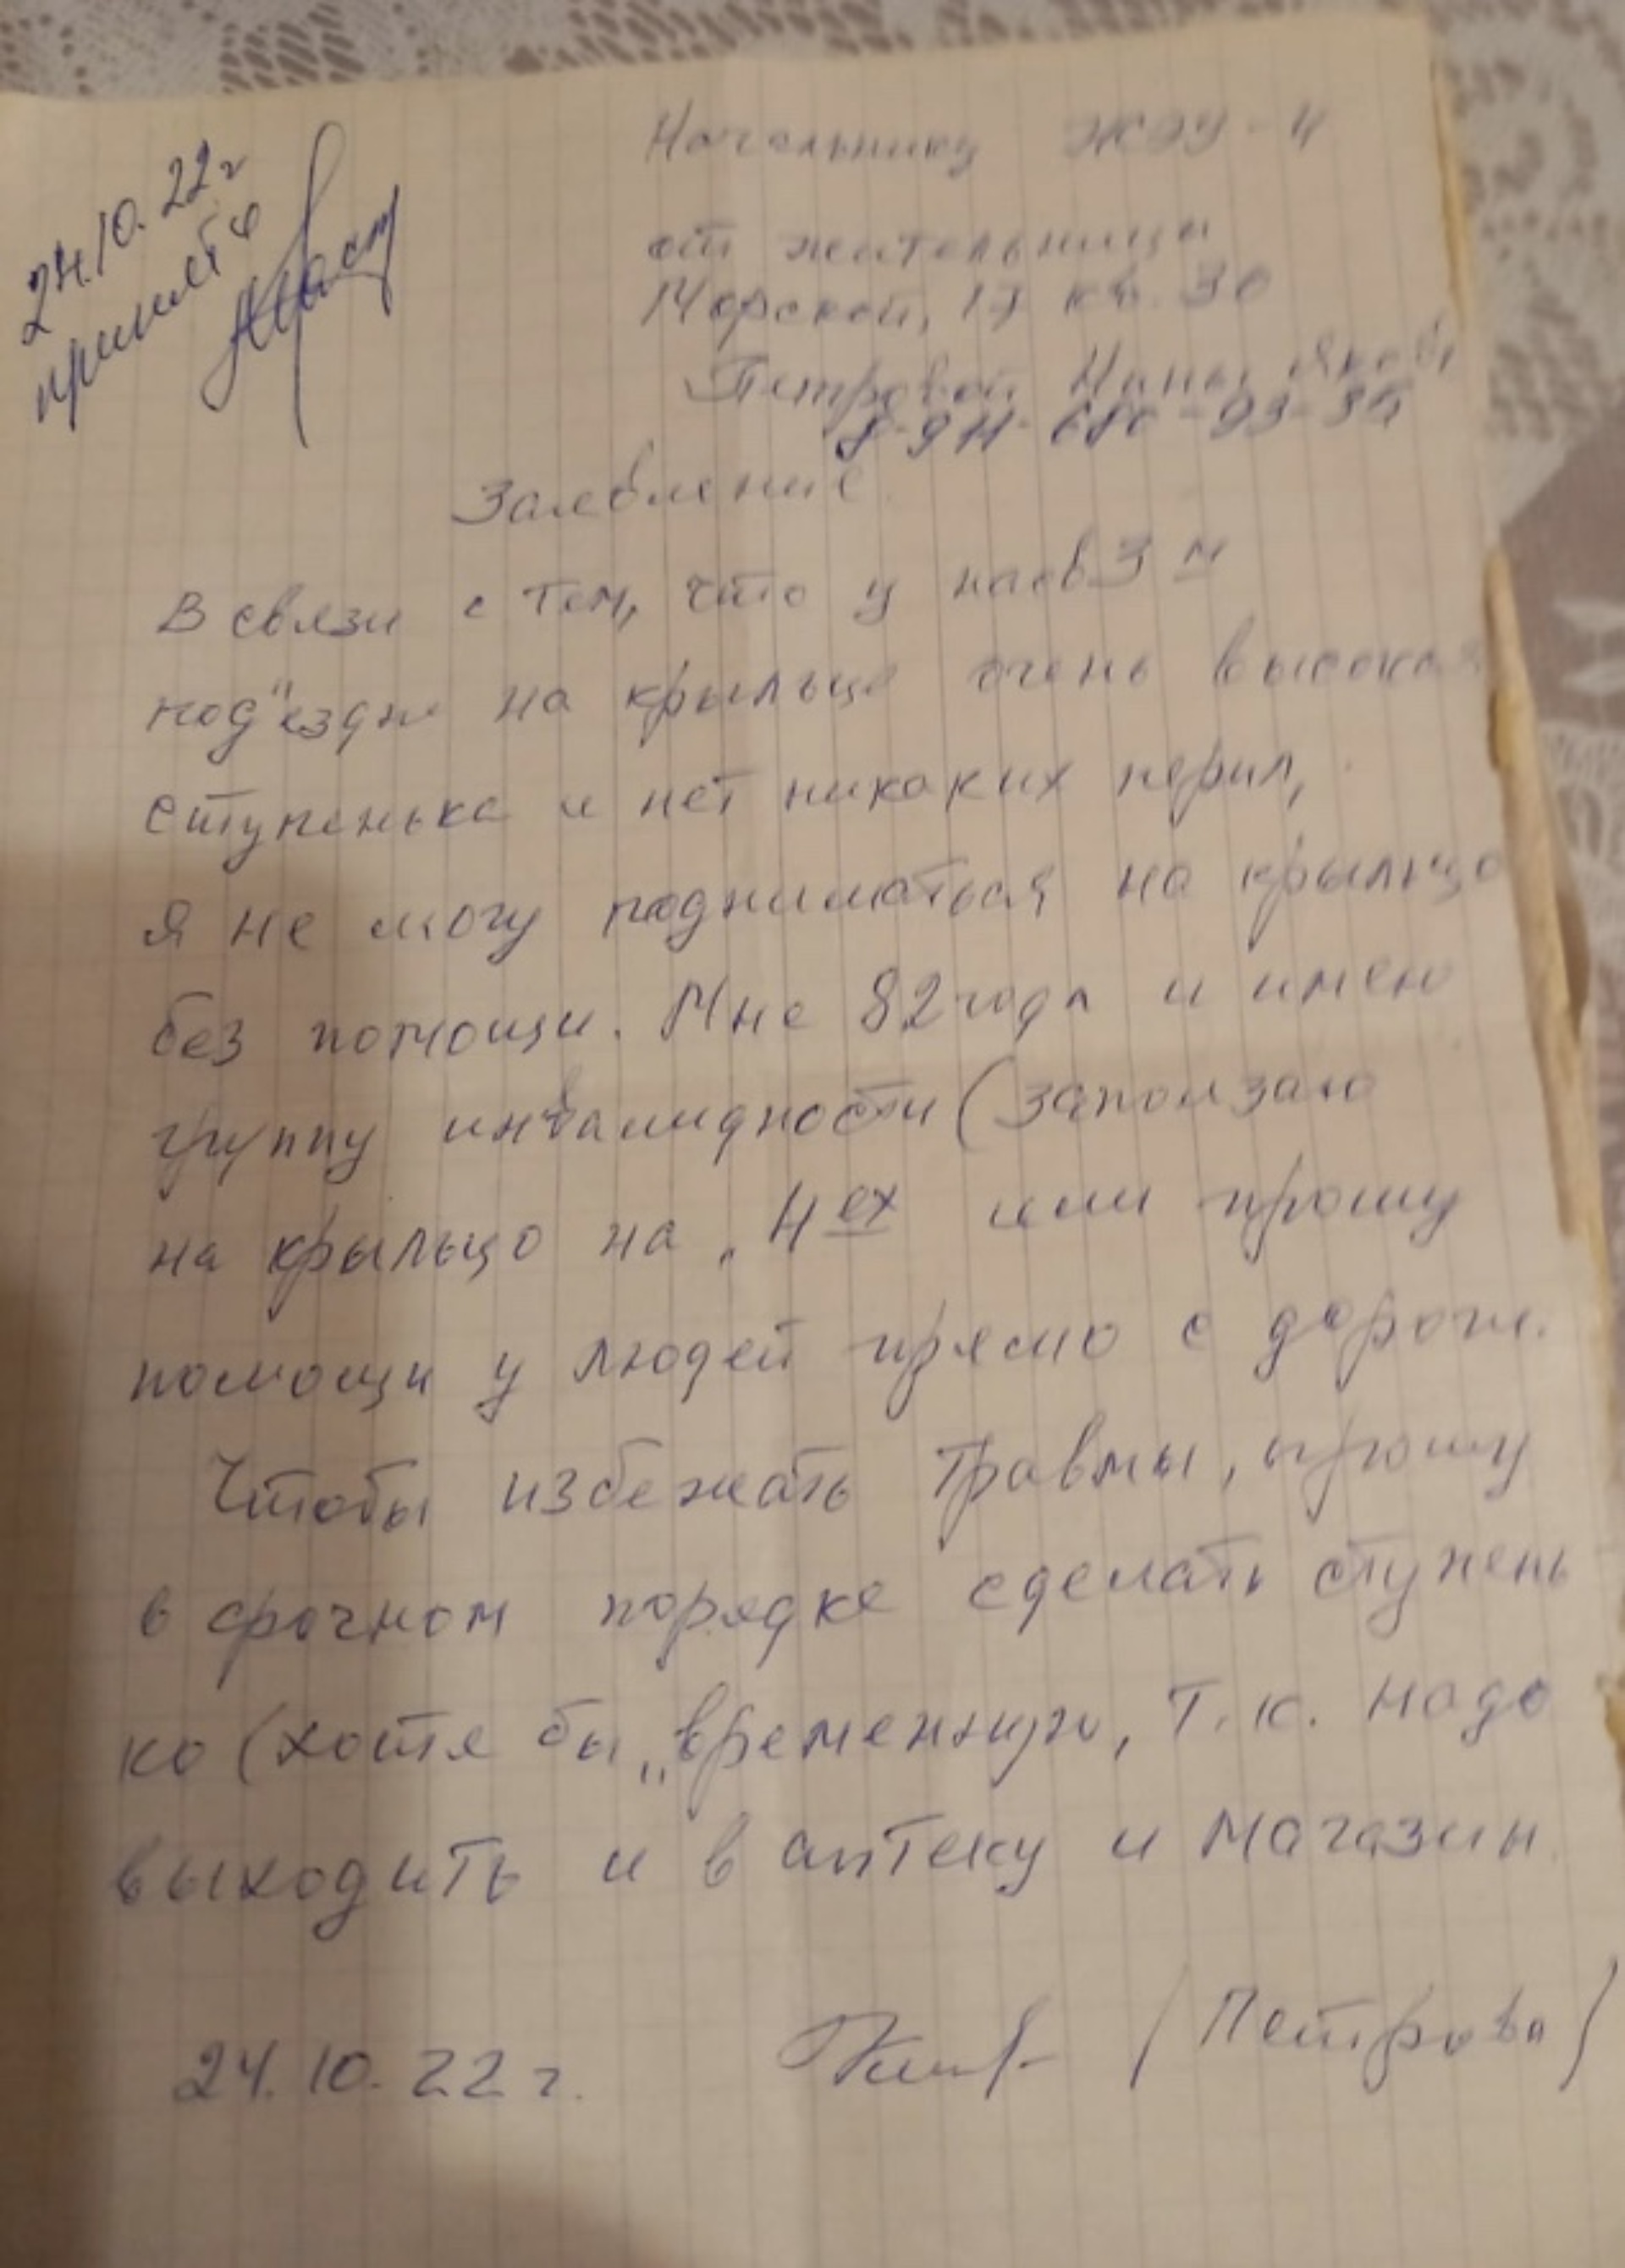 24.10.22г
Начальнику ЖЭУ-4
от жительницы
Морской, 17 кв. 30
Петровой Нины
Заявление
В связи с тем, что у нас в 3м
под"езде на крыльце очень высокая
ступенька и нет никаких перил,
я не могу подниматься на крыльцо
без помощи. Мне 82 года и имею
группу инвалидности (заползаю
на крыльцо на 4ех или прошу
помощи у людей прямо с дороги.
Чтобы избежать травмы, прошу
в срочном порядке сделать ступень
ку (хотя бы „временную, т.к. надо
выходить и в аптеку и магазин
24.10.22г. (Петрова)